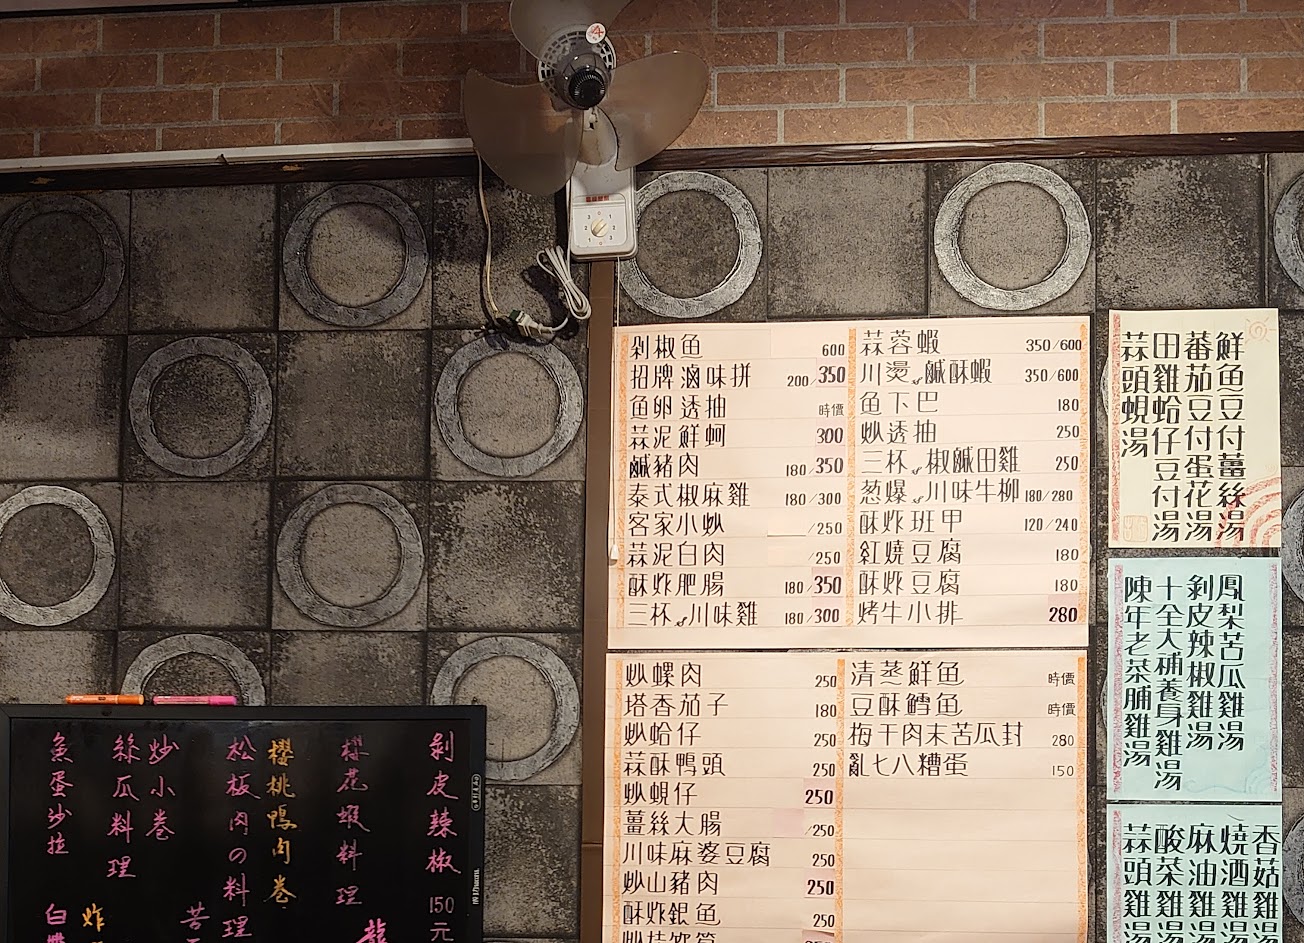 剁椒鱼 600
招牌滷味拼 200/350
鱼卵透抽 時價
蒜泥鮮蚵 300
鹹豬肉 180/350
泰式椒麻雞 180/300
客家小炒 /250
蒜泥白肉 /250
酥炸肥腸 180/350
三杯 川味雞 180/300
蒜蓉蝦 350/600
川燙 鹹酥蝦 350/600
鱼下巴 180
炒透抽 250
三杯 椒鹹田雞 250
葱爆 川味牛柳 180/280
酥炸班甲 120/240
紅燒豆腐 180
酥炸豆腐 180
烤牛小排 280
炒螺肉 250
塔香茄子 180
炒蛤仔 250
蒜酥鴨頭 250
炒蜆仔 250
薑絲大腸 /250
川味麻婆豆腐 250
炒山豬肉 250
酥炸銀鱼 250
清蒸鮮鱼 時價
豆酥鱈鱼 時價
梅干肉末苦瓜封 280
亂七八糟蛋 150
鮮鱼豆付薑絲湯
蕃茄豆付蛋花湯
田雞蛤仔豆付湯
蒜頭蜆湯
鳳梨苦瓜雞湯
剝皮辣椒雞湯
十全大補養身雞湯
陳年老菜脯雞湯
香菇雞湯
燒酒雞湯
麻油雞湯
酸菜雞湯
蒜頭雞湯
剝皮辣椒 150元
櫻花蝦料理
櫻桃鴨肉卷
松板肉の料理
炒小卷
絲瓜料理
魚蛋沙拉
龍
苦
炸
白